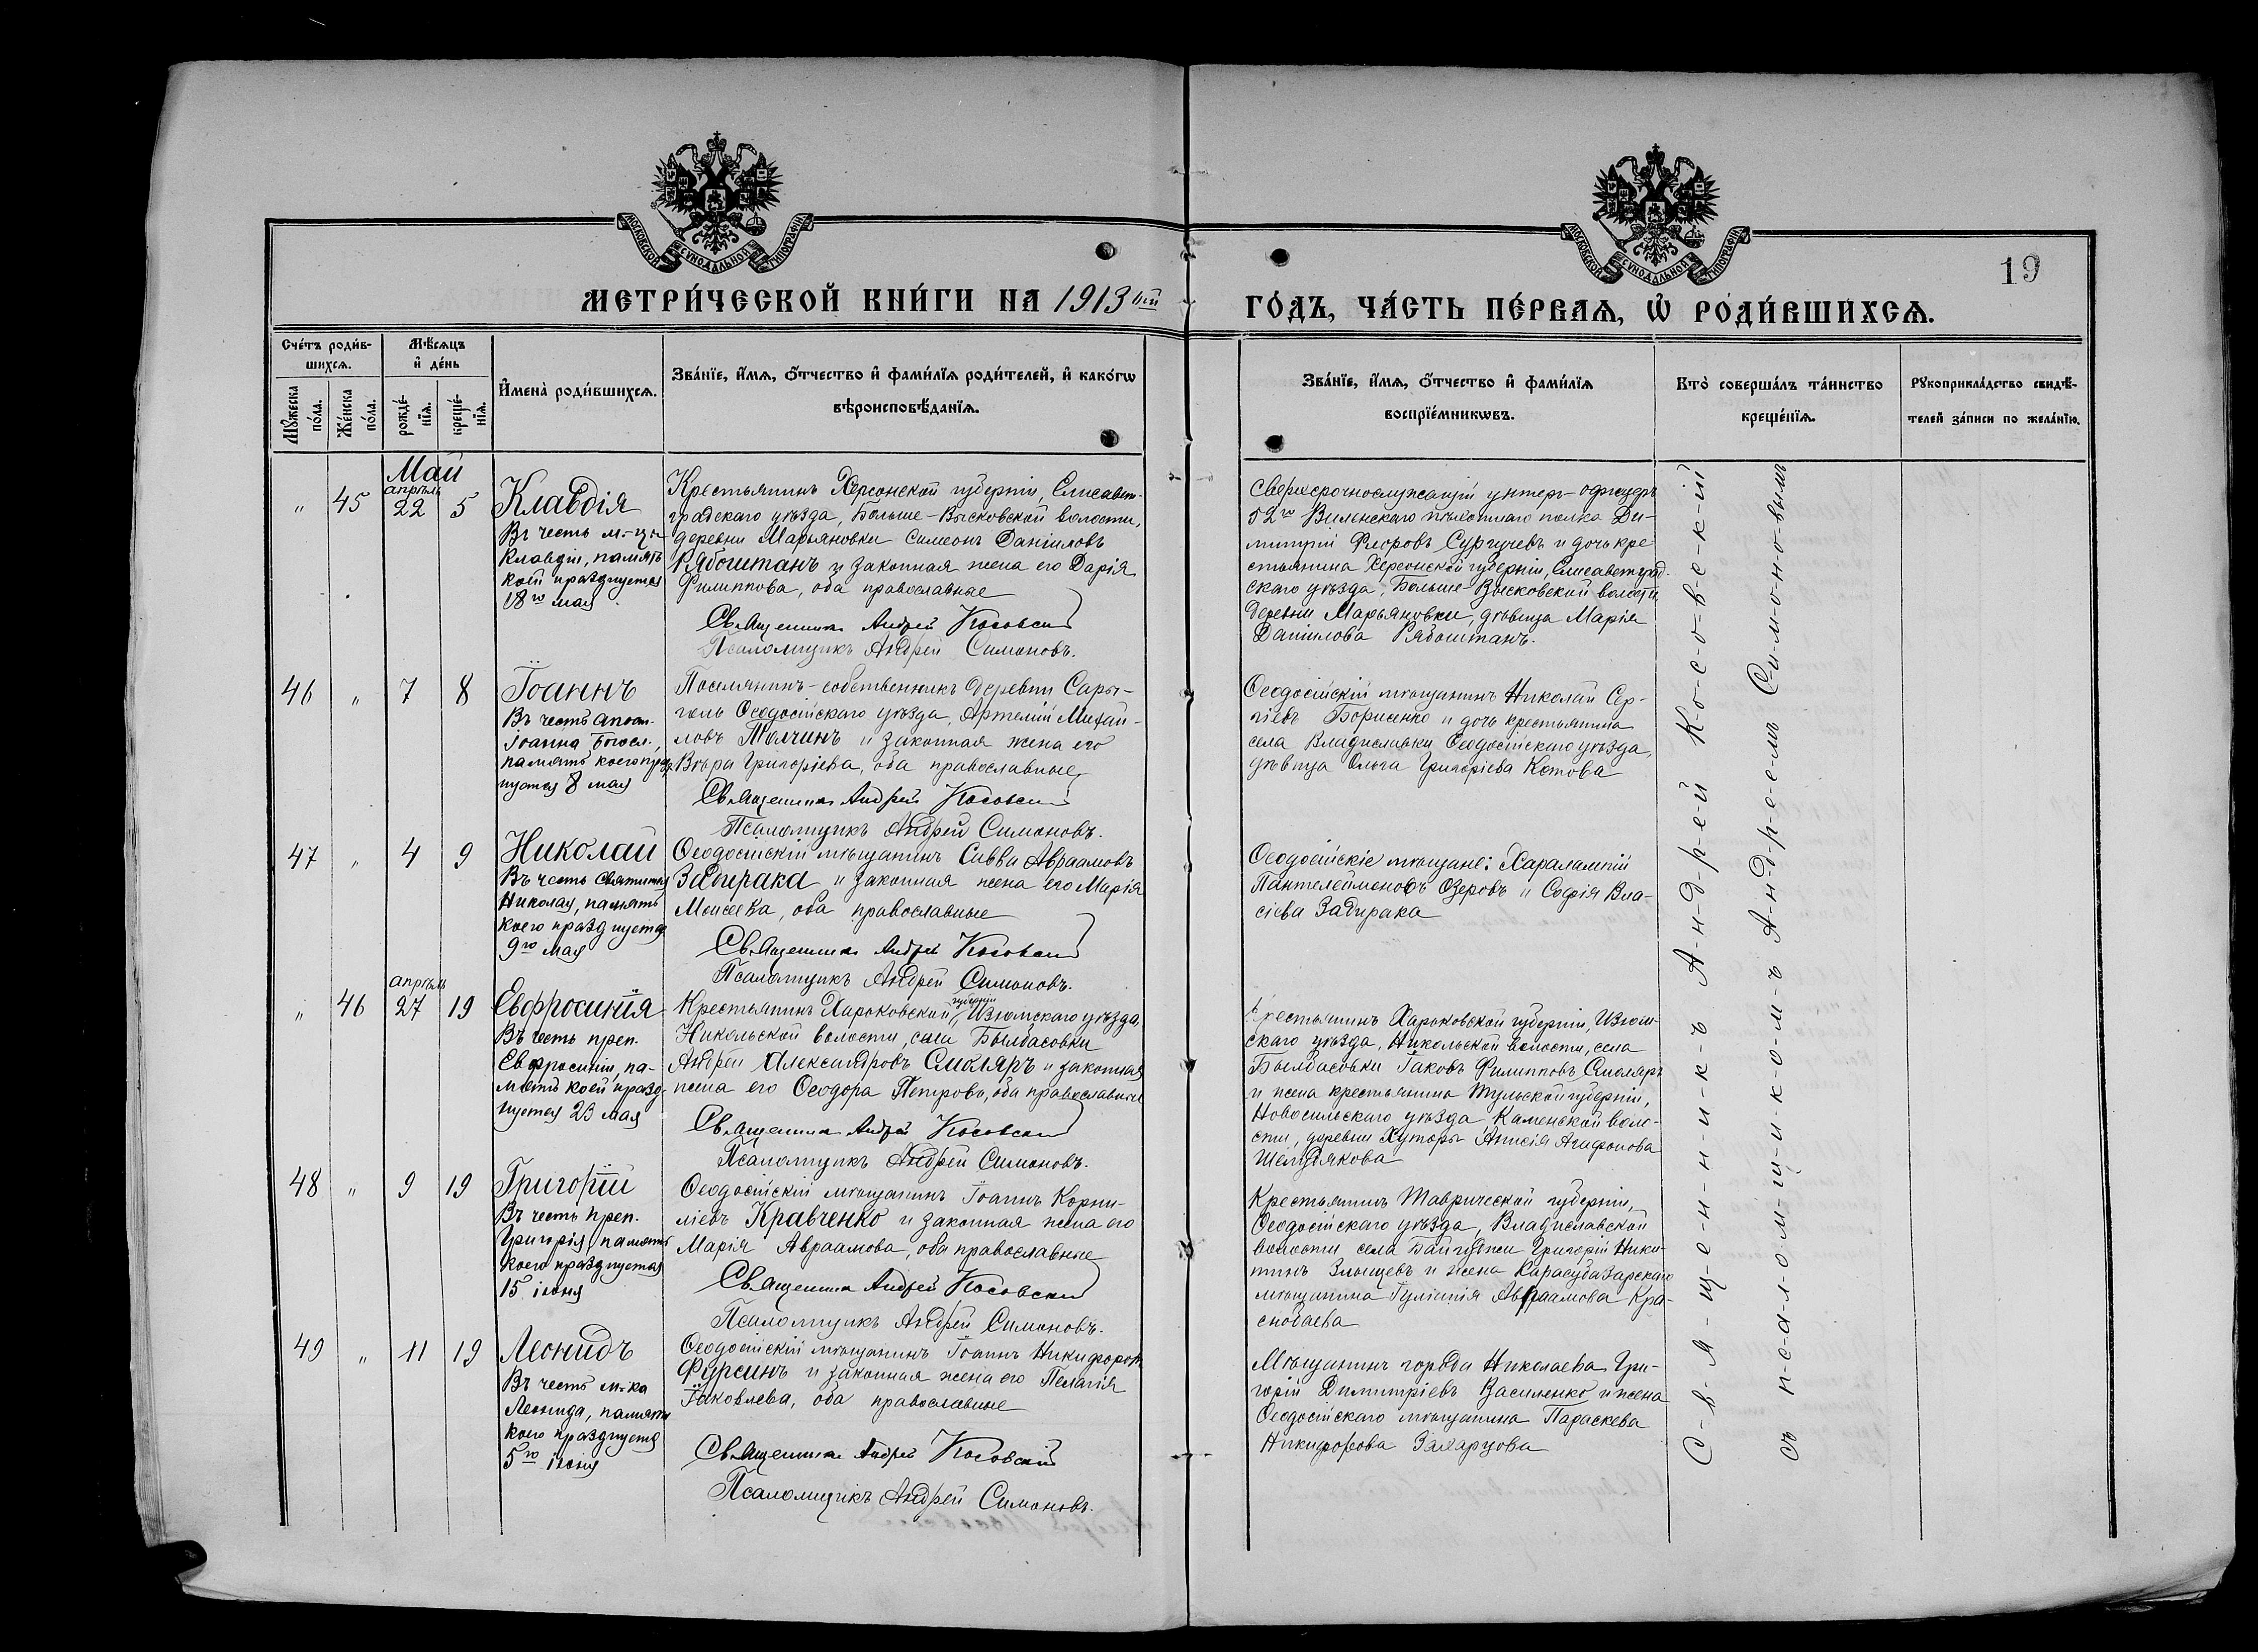 МОСКОВСКОЙ СѴНОДАЛЬНОЙ ТИПОГРАФІИ
МОСКОВСКОЙ СѴНОДАЛЬНОЙ ТИПОГРАФІИ
19
МЕТРИ́ЧЕСКОЙ КНИ́ГИ НА 1913 ый
ГО́ДЪ, ЧА́СТЬ ПЕ́РВАѦ, Ѡ РОДИ́ВШИХСѦ.
Сче́тъ роди́в-
шихсѧ.
Мꙋ́жеска по́ла.
Же́нска по́ла.
Мѣ́сѧцъ
и҆ де́нь
рожде́-
нїѧ.
креще́-
нїѧ.
И҆мена̀ роди́вшихсѧ.
Зва́нїе, и҆́мѧ, ѻ҆́тчество и҆ фами́лїѧ роди́телей, и҆ како́гѡ
вѣроисповѣ́данїѧ.
Зва́нїе, и҆́мѧ, ѻ҆́тчество и҆ фами́лїѧ
воспрїе́мникѡвъ.
Кто̀ соверша́лъ та́инство
креще́нїѧ.
Рꙋкоприкла́дство свидѣ́-
телей за́писи по жела́нїю.
Май
апрѣль
" 45 22 5
Клавдія
Въ честь м-цы
Клавдіи, память
коей празднуется
18го мая
Крестьянинъ Херсонской губерніи, Елисавет-
градскаго уѣзда, Больше-Высковской волости,
деревни Марьяновки Симеонъ Даніиловъ
Рябоштанъ и законная жена его Дарія
Филиппова, оба православные
Священникъ Андрей Косовскій
Псаломщикъ Андрей Симоновъ.
Сверхсрочнослужащій унтеръ-офицеръ
52го Виленскаго пѣхотнаго полка Ди-
митрій Флоровъ Сургучевъ и дочь кре
стьянина Херсонской губерніи, Елисаветград-
скаго уѣзда, Больше-Высковской волости
деревни Марьяновки, дѣвица Марія
Даніилова Рябоштанъ.
46 " 7 8
Іоаннъ
Въ честь апост.
Іоанна Богосл.,
память коего праз-
нуется 8 мая
Поселянинъ-собственникъ деревни Сары-
голь Ѳеодосійскаго уѣзда, Артемій Михаи-
ловъ Толчинъ и законная жена его
Вѣра Григоріева, оба православные
Священникъ Андрей Косовскій
Псаломщикъ Андрей Симоновъ.
Ѳеодосійскій мѣщанинъ Николай Сер-
гіевъ Борисенко и дочь крестьянина
села Владиславки Ѳеодосійскаго уѣзда,
дѣвица Ольга Григоріева Котова
47 " 4 9
Николай
Въ честь Святителя
Николая, память
коего празднуется
9го мая
Ѳеодосійскій мѣщанинъ Савва Авраамовъ
Задирака и законная жена его Марія
Моисеева, оба православные
Священникъ Андрей Косовскій
Псаломщикъ Андрей Симоновъ.
Ѳеодосійскіе мѣщане: Харалампій
Пантелеймоновъ Озеровъ и Софія Вла-
сіева Задирака
апрѣль
" 46 27 19
Евфросинія
Въ честь преп.
Евфросиніи, па-
мять коей празд-
нуется 23 мая
губерніи
Крестьянинъ Харьковской, Изюмскаго уѣзда,
Никольской волости, села Былбасовки
Андрей Александровъ Смоляръ и законная
жена его Ѳеодора Петрова, оба православные
Священникъ Андрей Косовскій
Псаломщикъ Андрей Симоновъ.
Крестьянинъ Харьковской губерніи, Изюм-
скаго уѣзда, Никольской волости, села
Былбасовки Іаковъ Филипповъ Смоляръ
и жена крестьянина Тульской губерніи,
Новосильскаго уѣзда Каменской воло-
сти, деревни Хуторы Анисія Агафонова
48 " 9 19
Григорій
Въ честь преп.
Григорія, память
коего празднуется
15 іюня
Ѳеодосійскій мѣщанинъ Іоаннъ Корни-
ліевъ Кравченко и законная жена его
Марія Авраамова, оба православные
Священникъ Андрей Косовскій
Псаломщикъ Андрей Симоновъ.
Крестьянинъ Таврической губерніи,
Ѳеодосійскаго уѣзда, Владиславской
волости села Байгуджи Григорій Ники-
тинъ и жена Карасубазарскаго
мѣщанина Гуліанія Авраамова Кра-
снобаева
49 " 11 19
Леонидъ
Въ честь м-ка
Леонида, память
коего празднуется
5го іюня
Ѳеодосійскій мѣщанинъ Іоаннъ Никифоровъ
Фурсинъ и законная жена его Пелагія
Іаковлева, оба православные
Священникъ Андрей Косовскій
Псаломщикъ Андрей Симоновъ.
Мѣщанинъ города Николаева Гри-
горій Димитріевъ Василенко и жена
Ѳеодосійскаго мѣщанина Параскева
Никифорова
С-в-я-щ-е-н-н-и-к-ъ А-н-д-р-е-й К-о-с-о-в-с-к-і-й
съ п-с-а-л-о-м-щ-и-к-о-м-ъ А-н-д-р-е-е-мъ Си-м-о-н-о-вымъ